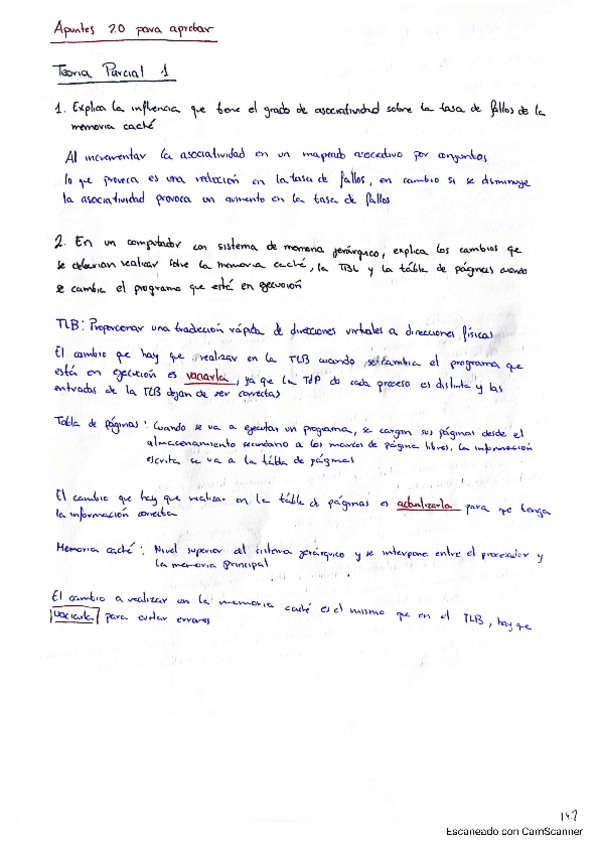 Apuntes 2.0 para aprobar
Teoría Parcial 1
1. Explica la influencia que tiene el grado de asociatividad sobre la tasa de fallos de la
memoria caché
Al incrementar la asociatividad en un mapeado asociativo por conjuntos
lo que provoca es una reducción en la tasa de fallos, en cambio si se disminuye
la asociatividad provoca un aumento en la tasa de fallos
2. En un computador con sistema de memoria jerárquico, explica los cambios que
se deberían realizar sobre la memoria caché, la TBL y la tabla de páginas cuando
se cambia el programa que está en ejecución
TLB: Proporcionar una traducción rápida de direcciones virtuales a direcciones físicas
El cambio que hay que realizar en la TLB cuando se cambia el programa que
está en ejecución es vaciarla, ya que la TdP de cada proceso es distinta y las
entradas de la TLB dejan de ser correctas
Tabla de páginas: Cuando se va a ejecutar un programa, se cargan sus páginas desde el
almacenamiento secundario a los marcos de página libres. La información
escrita se va a la tabla de páginas
El cambio que hay que realizar en la tabla de páginas es actualizarla para que tenga
la información correcta
Memoria caché: Nivel superior del sistema jerárquico y se interpone entre el procesador y
la memoria principal
El cambio a realizar en la memoria caché es el mismo que en el TLB, hay que
vaciarla para evitar errores
Escaneado con CamScanner